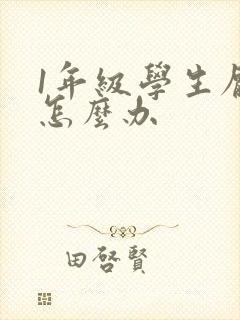 1年級學生
怎麼办
田啓賢